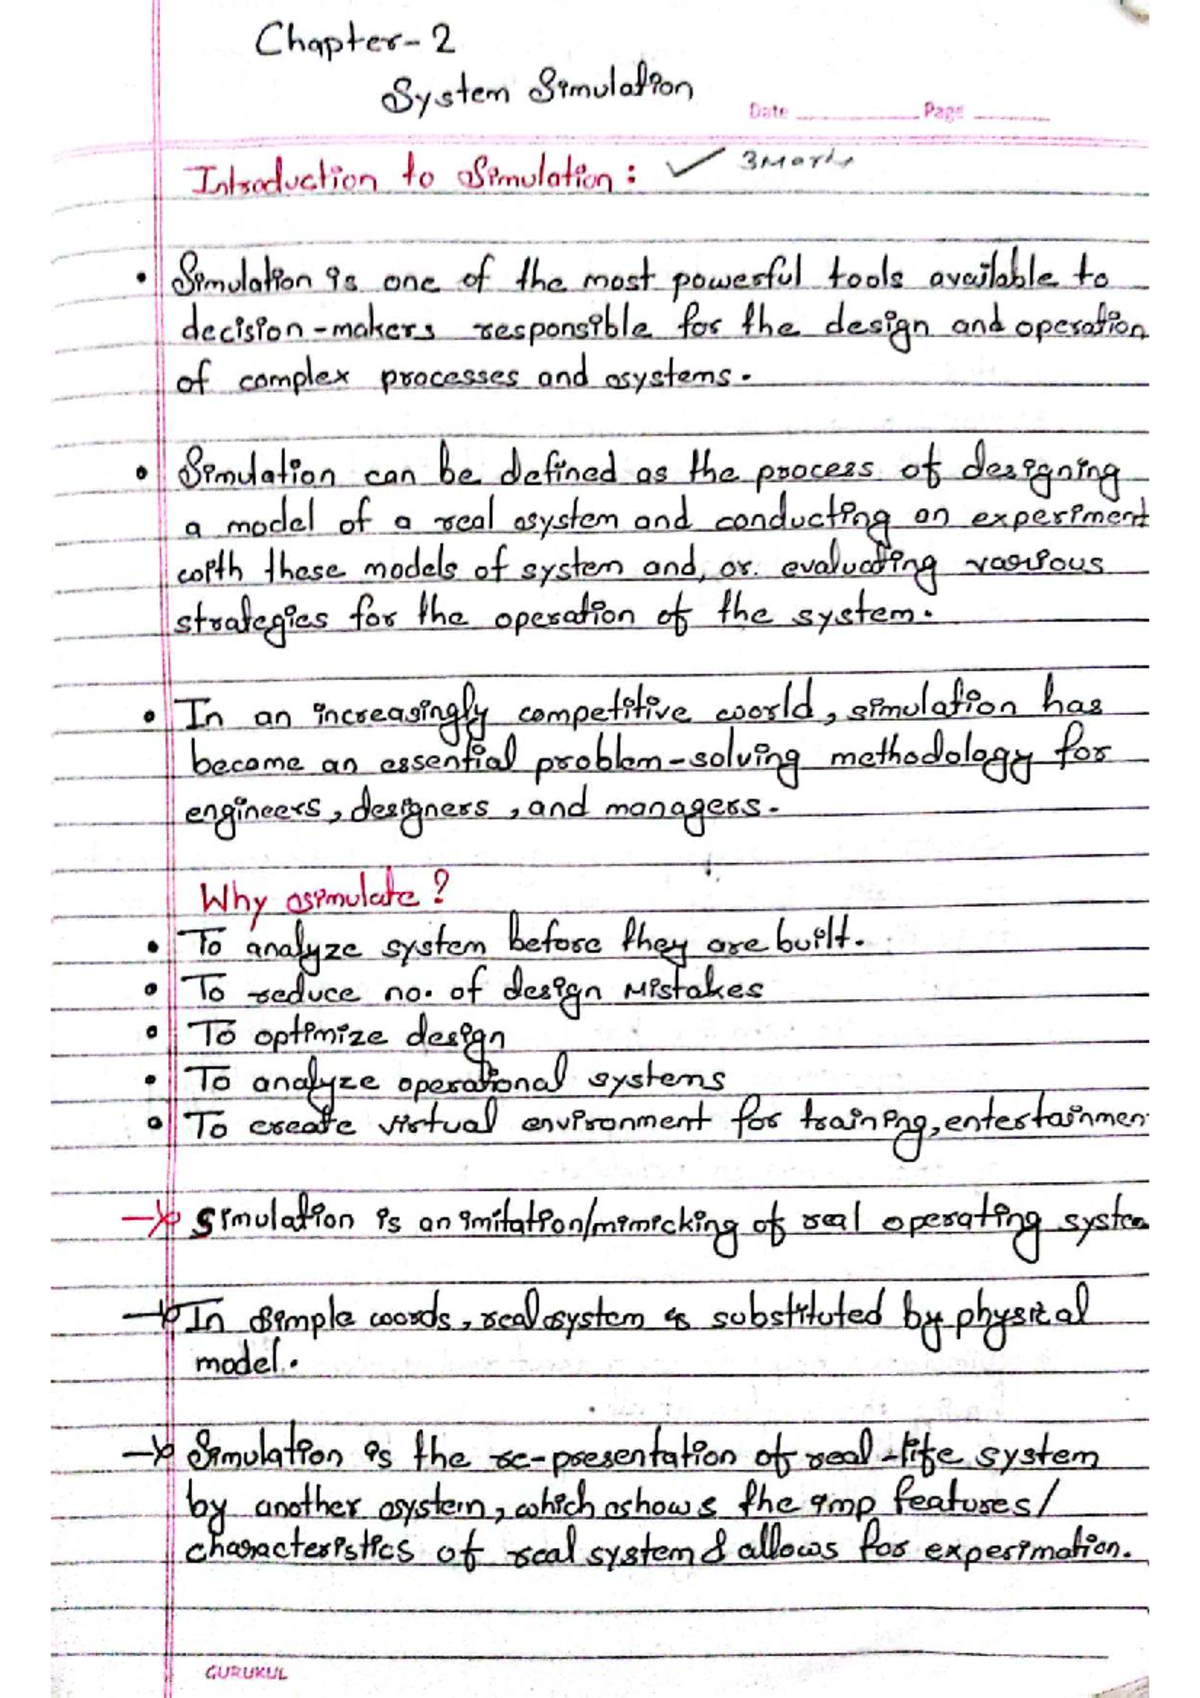 Chapter-2
System Simulation
Date ________ Page ________
Introduction to Simulation: ✓ 3 Marks
• Simulation is one of the most powerful tools available to
decision-makers responsible for the design and operation
of complex processes and systems.
• Simulation can be defined as the process of designing
a model of a real system and conducting an experiment
with these models of system and, or. evaluating various
strategies for the operation of the system.
• In an increasingly competitive world, simulation has
become an essential problem-solving methodology for
engineers, designers, and managers.
Why simulate?
• To analyze system before they are built.
• To reduce no. of design Mistakes
• To optimize design
• To analyze operational systems
• To create virtual environment for training, entertainmen
→ Simulation is an imitation/mimicking of real operating system
→ In simple words, real system is substituted by physical
model.
→ Simulation is the re-presentation of real-life system
by another system, which shows the imp features/
characteristics of real system & allows for experimation.
GURUKUL